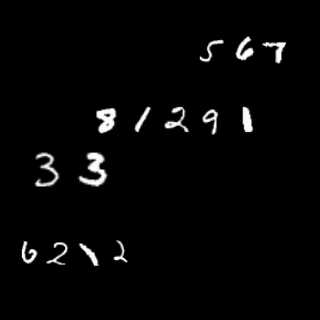 567
81291
33
6212